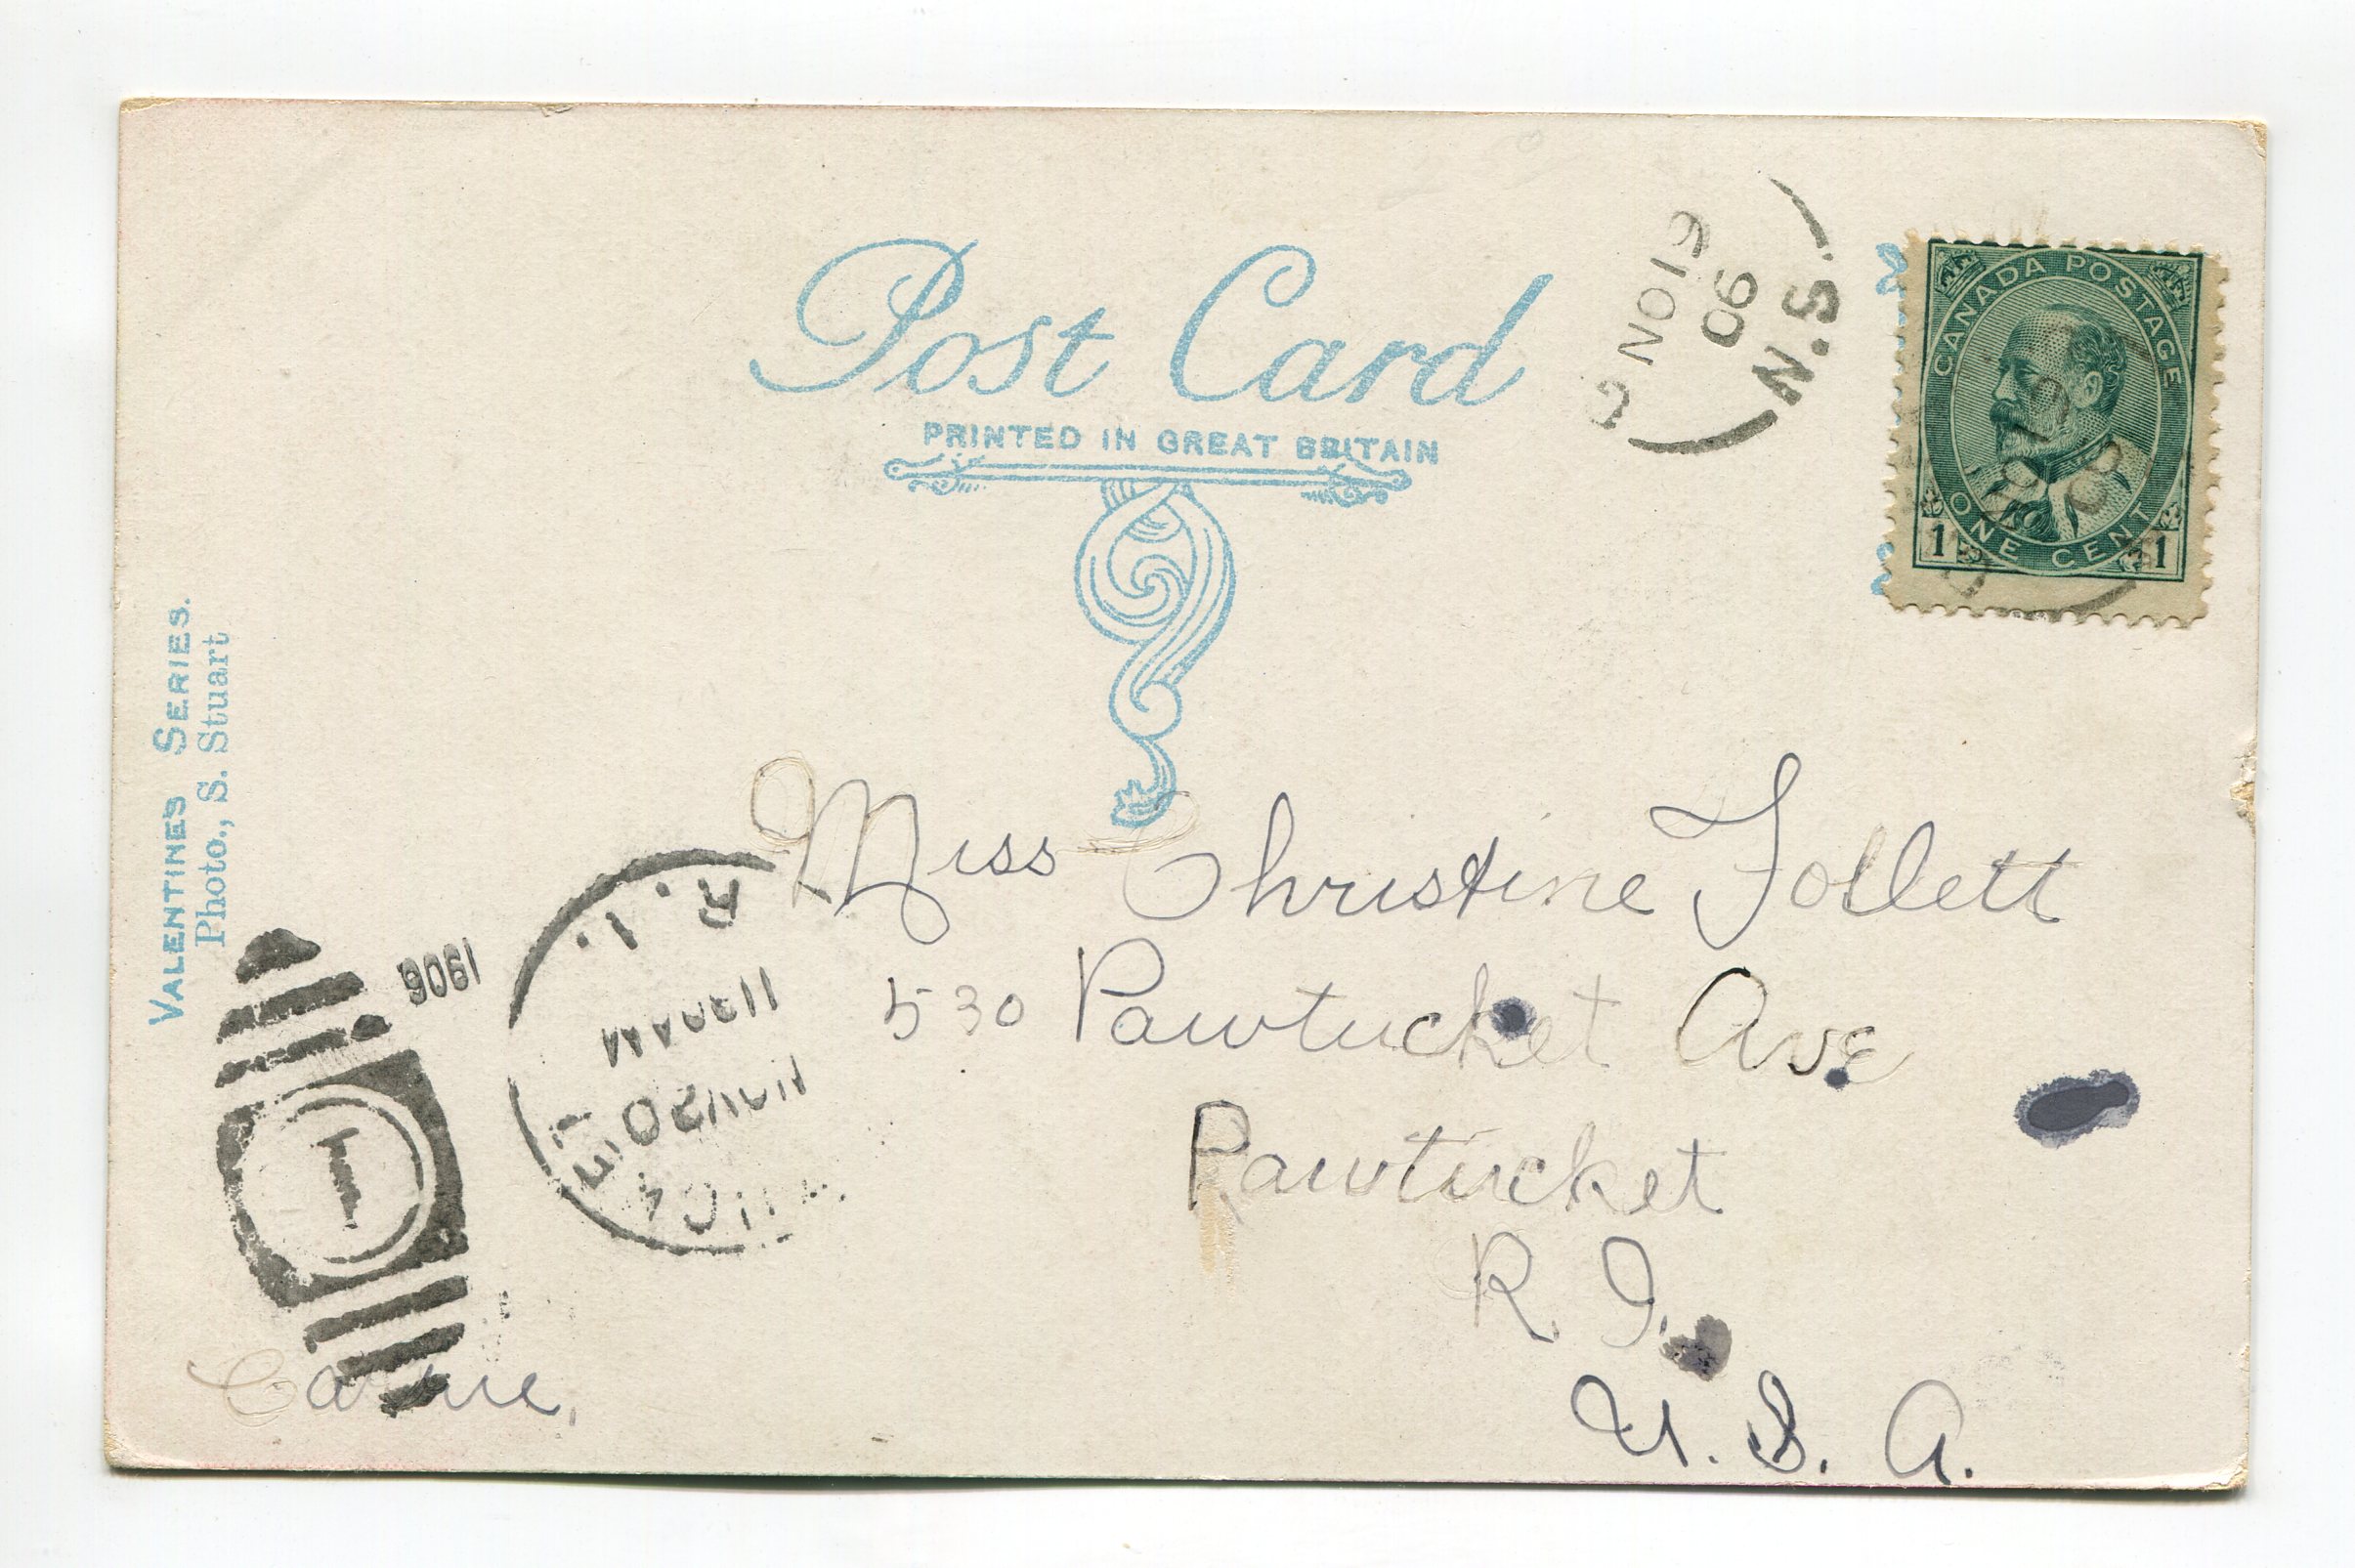 Post Card
PRINTED IN GREAT BRITAIN
NO 19
06
N.S.
CANADA POSTAGE
ONE CENT
1 1
VALENTINES SERIES.
Photo., S. Stuart
Miss Christine Follett
530 Pawtucket Ave
Pawtucket
R. I.
U. S. A.
1906
R. I.
11 30 AM
NOV 20
1